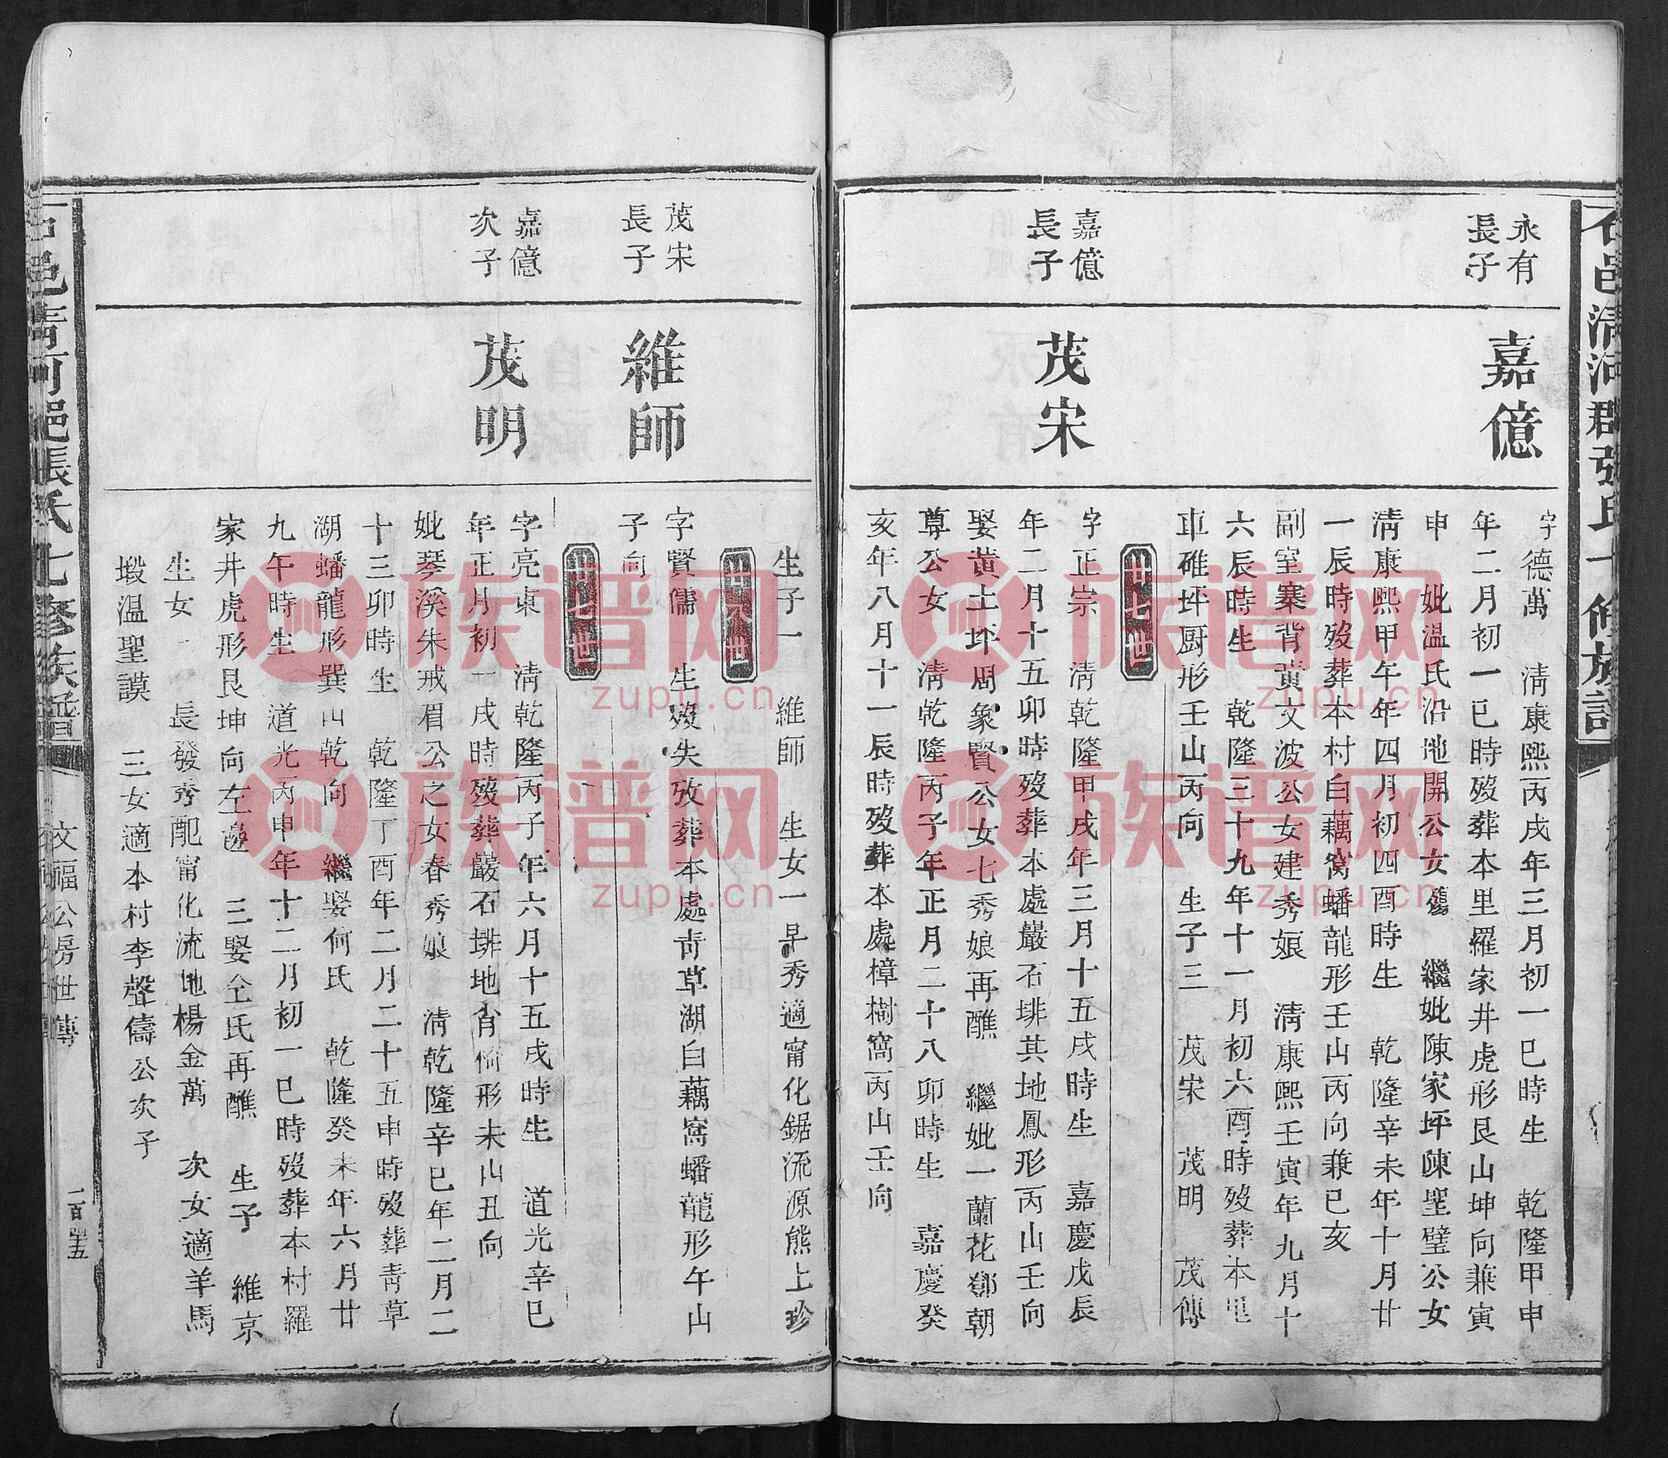 永有
長子
嘉億
字德萬　清康熙丙戌年三月初一巳時生　乾隆甲申
年二月初一巳時歿葬本里羅家井虎形艮山坤向兼寅
申　妣溫氏沿地開公女　繼妣陳家坪陳聖璧公女
清康熙甲午年四月初四酉時生　乾隆辛未年十月廿
一辰時歿葬本村白藕窩蟠龍形壬山丙向兼巳亥
副室寨背黃文波公女建秀娘　清康熙壬寅年九月十
六辰時生　乾隆三十九年十一月初六酉時歿葬本里
車碓坪厨形壬山丙向　生子三　茂宋　茂明　茂傳
四七世
嘉億
長子
茂宋
字正宗　清乾隆甲戌年三月十五戌時生　嘉慶戊辰
年二月十五卯時歿葬本處嚴石排其地鳳形丙山壬向
娶黃土坪周象賢公女七秀娘再醮　繼妣一蘭花鄧朝
尊公女　清乾隆丙子年正月二十八卯時生　嘉慶癸
亥年八月十一辰時歿葬本處樟樹窩丙山壬向
生子一　維師　生女一早秀適甯化鋸流源熊上珍
四八世
茂宋
長子
維師
字賢儒　生歿失攷葬本處青草湖白藕窩蟠龍形午山
子向
四七世
嘉億
次子
茂明
字亮東　清乾隆丙子年六月十五戌時生　道光辛巳
年正月初一戌時歿葬嚴石排地形未山丑向
妣琴溪朱戒眉公之女春秀娘　清乾隆辛巳年二月二
十三卯時生　乾隆丁酉年二月二十五申時歿葬青草
湖蟠龍形巽山乾向　繼娶何氏　乾隆癸未年六月廿
九午時生　道光丙申年十二月初一巳時歿葬本村羅
家井虎形艮坤向左邊　三娶仝氏再醮　生子　維京
生女　長發秀配甯化流地楊金萬　次女適羊馬
塅溫聖謨　三女適本村李聲儔公次子
文福公房世傳
一百四五